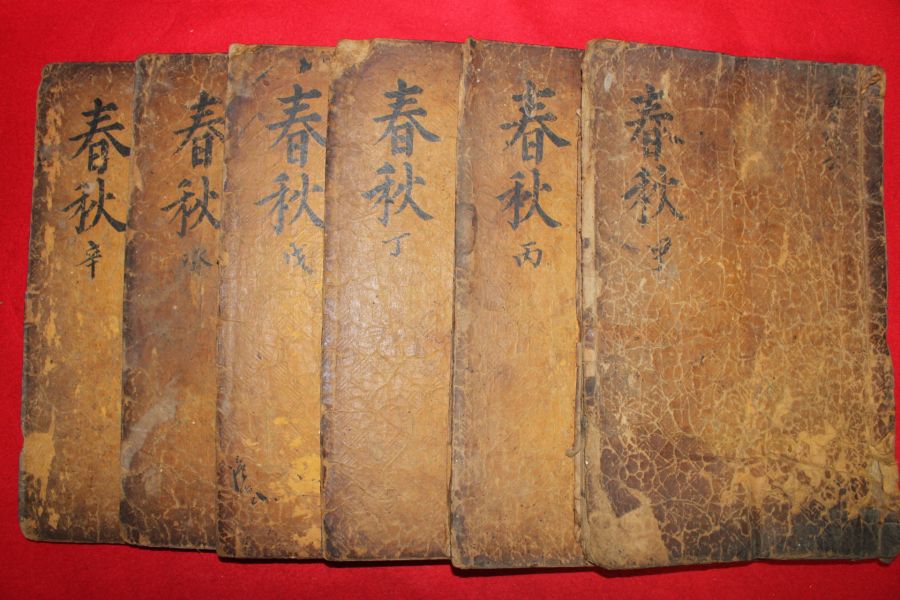 春秋 甲
春秋 丙
春秋 丁
春秋 戊
春秋 癸
春秋 辛